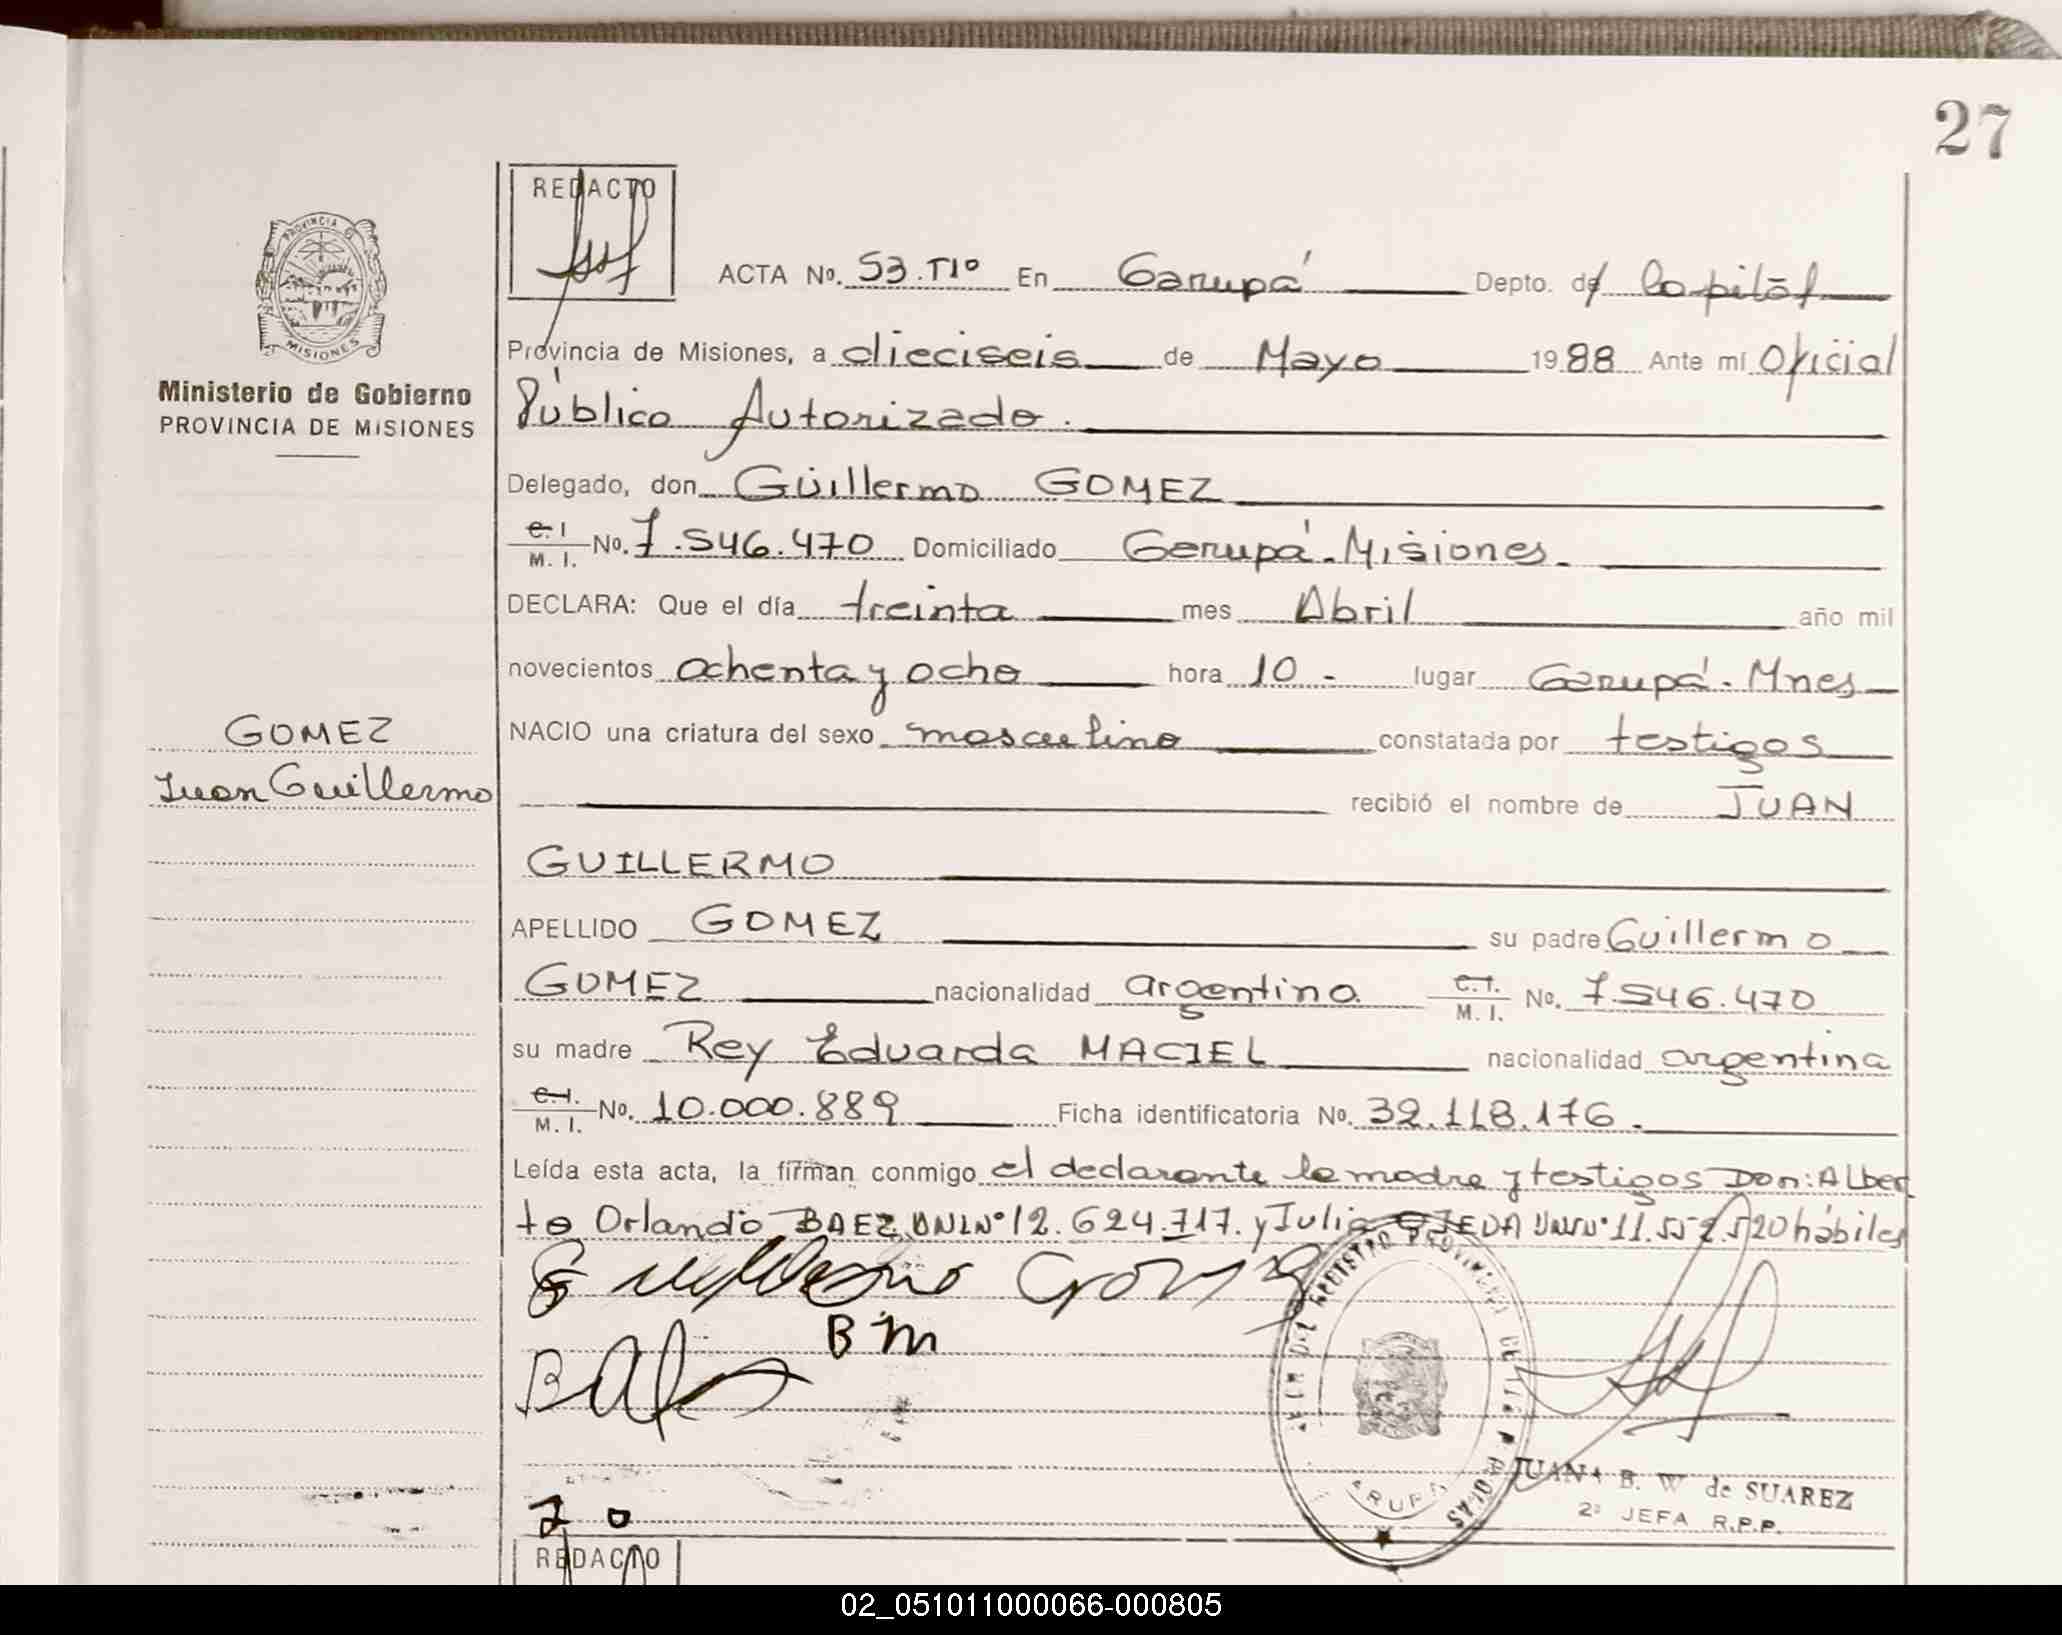 27
REDACTO
PROVINCIA DE
MISIONES
Ministerio de Gobierno
PROVINCIA DE MISIONES
ACTA No. 53.TIº En Garupá Depto. de Capital
Provincia de Misiones, a dieciseis de Mayo 1988 Ante mí Oficial
Público Autorizado.
Delegado, don Guillermo GOMEZ
C. I. M. I. No. 7.546.470 Domiciliado Garupá-Misiones.
DECLARA: Que el día treinta mes Abril año mil
novecientos ochenta y ocho hora 10 - lugar Garupá-Mnes
NACIO una criatura del sexo masculino constatada por testigos
recibió el nombre de JUAN
GOMEZ
Juan Guillermo
GUILLERMO
APELLIDO GOMEZ su padre Guillermo
GOMEZ nacionalidad argentino C. I. M. I. No. 7.546.470
su madre Rey Eduarda MACIEL nacionalidad argentina
C. I. M. I. No. 10.000.889 Ficha identificatoria No. 32.118.176.
Leída esta acta, la firman conmigo el declarante la madre y testigos Don: Alber
to Orlando BAEZ DNI Nº 12.624.717. y Julia OJEDA DNI Nº 11.552.520 hábiles
Guillermo Gomez
B M
J O
JUANA B. W de SUAREZ
2ª JEFA R.P.P.
REDACTO
02_051011000066-000805